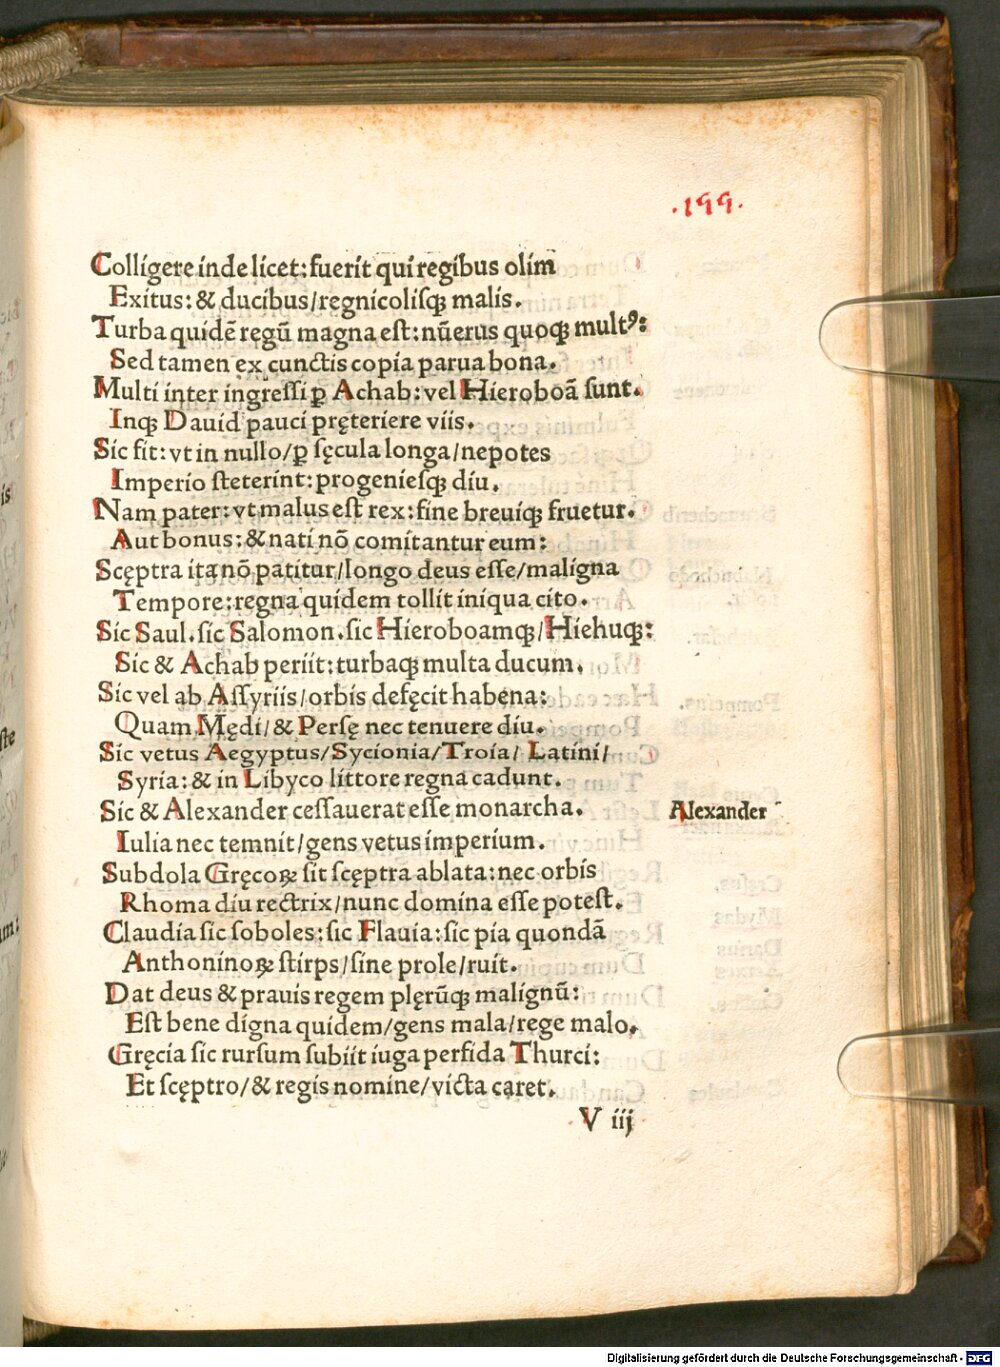 .199.
Colligere inde licet: fuerit qui regibus olim
Exitus: & ducibus/ regnicolisqꝫ malis.
Turba quidẽ regũ magna est: nũerus quoqꝫ multꝰ:
Sed tamen ex cunctis copia parua bona.
Multi inter ingressi ꝑ Achab: vel Hieroboã sunt.
Inqꝫ Dauid pauci pręteriere viis.
Sic fit: vt in nullo/ ꝑ sęcula longa/ nepotes
Imperio steterint: progeniesqꝫ diu.
Nam pater: vt malus est rex: fine breuiqꝫ fruetur.
Aut bonus: & nati nõ comitantur eum:
Scęptra ita nõ patitur/ longo deus esse/ maligna
Tempore: regna quidem tollit iniqua cito.
Sic Saul. sic Salomon. sic Hieroboamqꝫ/ Hiehuqꝫ:
Sic & Achab periit: turbaqꝫ multa ducum.
Sic vel ab Assyriis/ orbis defęcit habena:
Quam Mędi/ & Persę nec tenuere diu.
Sic vetus Aegyptus/ Sycionia/ Troia/ Latini/
Syria: & in Libyco littore regna cadunt.
Sic & Alexander cessauerat esse monarcha.
Alexander
Iulia nec temnit/ gens vetus imperium.
Subdola Gręcoꝝ sit scęptra ablata: nec orbis
Rhoma diu rectrix/ nunc domina esse potest.
Claudia sic soboles: sic Flauia: sic pia quondã
Anthoninoꝝ stirps/ sine prole/ ruit.
Dat deus & prauis regem plęrũqꝫ malignũ:
Est bene digna quidem/ gens mala/ rege malo.
Gręcia sic rursum subiit iuga perfida Thurci:
Et scęptro/ & regis nomine/ victa caret.
V iij
Digitalisierung gefördert durch die Deutsche Forschungsgemeinschaft - DFG